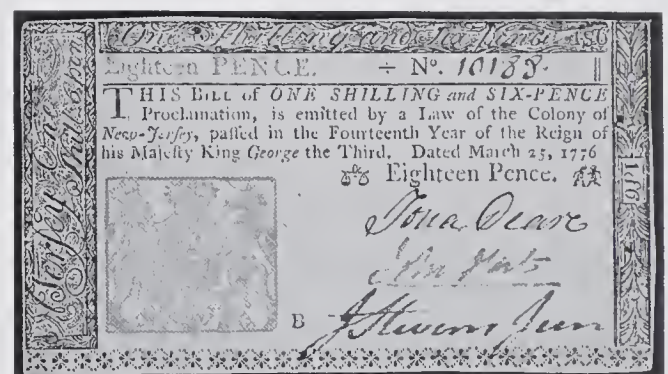 One Shilling and Six Pence. 1s6
Eighteen PENCE. ÷ No. 10188.
THIS BILL of ONE SHILLING and SIX-PENCE
Proclamation, is emitted by a Law of the Colony of
New-Jerſey, paſſed in the Fourteenth Year of the Reign of
his Majeſty King George the Third. Dated March 25, 1776
Eighteen Pence.
Jona. Deare
John
B
J Stevens Jun
Jerſey One Shilling
1s6